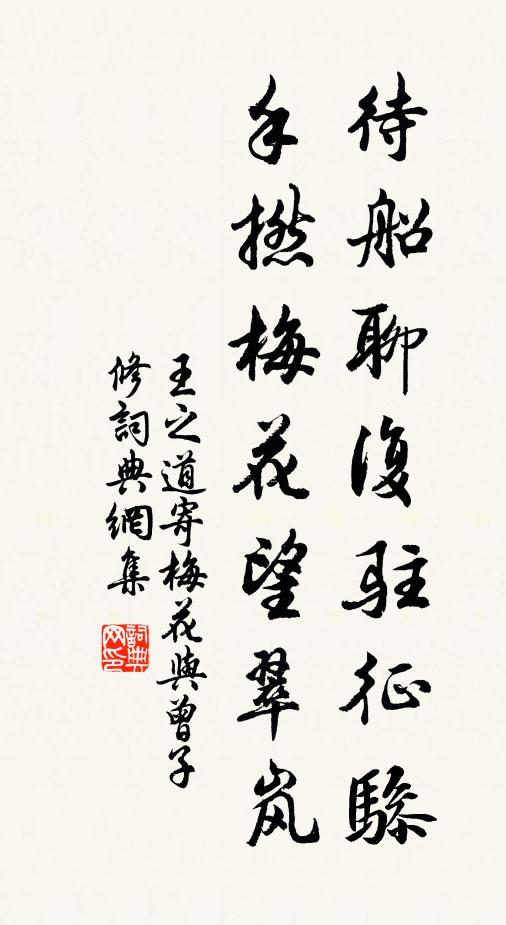 待船聊復駐征驂
手撚梅花望翠岚
王之道寄梅花與曾子
修詞典網集
詞典网印